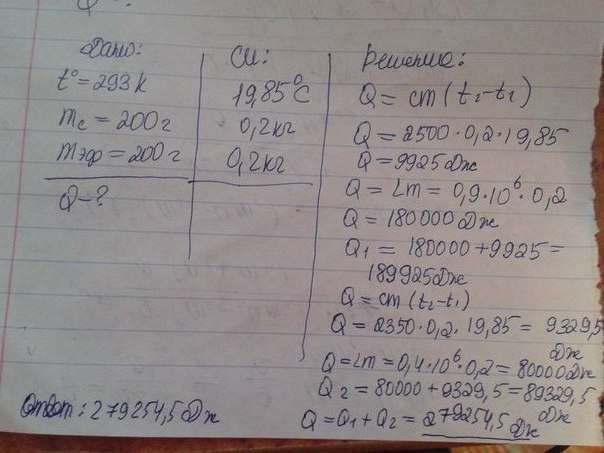 Q-?
Дано:
t°=293 k
mс = 200 г
mэф = 200 г
Q-?
Си:
19,85°C
0,2 кг
0,2 кг
Решение:
Q = cm (t₂-t₁)
Q = 2500·0,2·19,85
Q = 9925 Дж
Q = Lm = 0,9·10⁶·0,2
Q = 180000 Дж
Q₁ = 180000+9925 =
189925 Дж
Q = cm (t₂-t₁)
Q = 2350·0,2·19,85 = 9329,5
Дж
Q = Lm = 0,4·10⁶·0,2 = 80000 Дж
Q₂ = 80000 + 9329,5 = 89329,5
Дж
Q = Q₁ + Q₂ = 279254,5 Дж
Ответ: 279254,5 Дж